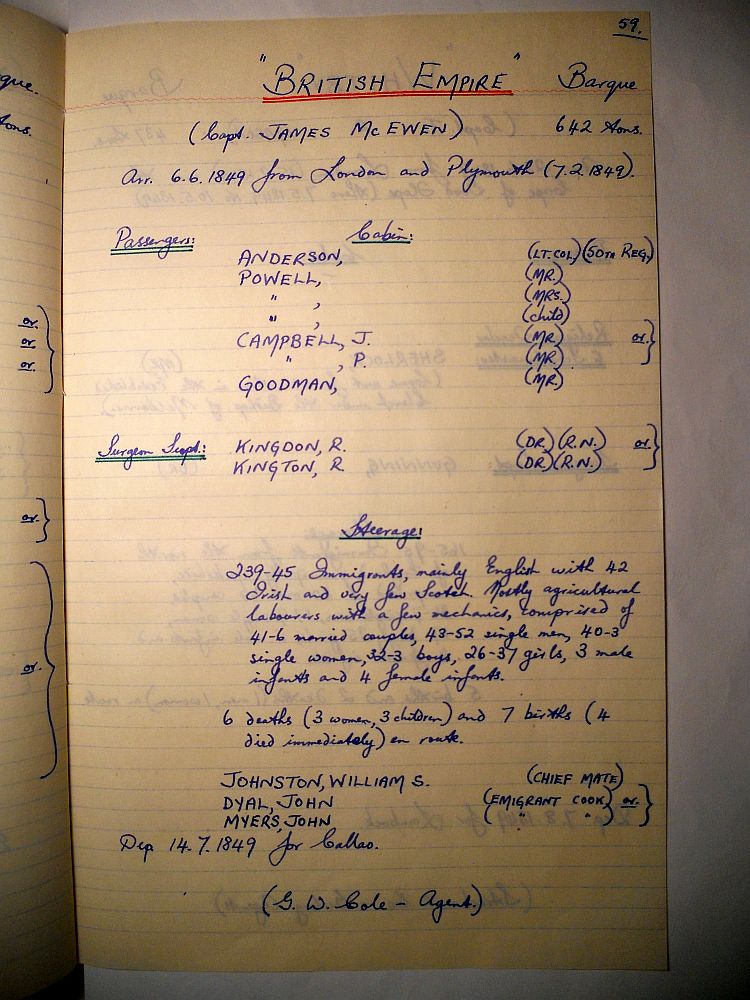 59.
"BRITISH EMPIRE" Barque
(Capt. JAMES McEWEN) 642 tons.
Arr. 6.6.1849 from London and Plymouth (7.2.1849).
Passengers: Cabin:
ANDERSON, (LT. COL) (50TH REG)
POWELL, (MR.)
" , (MRS.)
" , (child)
CAMPBELL, J. (MR.) or. }
" , P. (MR.)
GOODMAN, (MR)
Surgeon Supt.: KINGDON, R. (DR.) (R.N.) or. }
KINGTON, R. (DR.) (R.N.)
Steerage:
239-45 Immigrants, mainly English with 42
Irish and very few Scotch. Mostly agricultural
labourers with a few mechanics, comprised of
41-6 married couples, 43-52 single men, 40-3
single women, 32-3 boys, 26-37 girls, 3 male
infants and 4 female infants.
6 deaths (3 women, 3 children) and 7 births (4
died immediately) en route.
JOHNSTON, WILLIAM S. (CHIEF MATE)
DYAL, JOHN (EMIGRANT COOK) or. }
MYERS, JOHN " "
Dep. 14.7.1849 for Callao.
(G. W. Cole - Agent.)
que.
tons.
or.
or.
or.
or.
or.